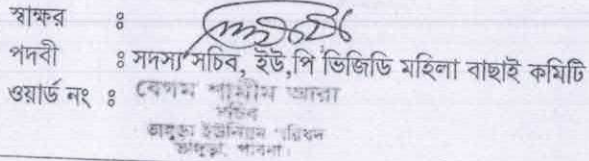 স্বাক্ষর ঃ
পদবী ঃ সদস্য সচিব, ইউ,পি ভিজিডি মহিলা বাছাই কমিটি
ওয়ার্ড নং ঃ বেগম শামীম আরা
সচিব
ভাড়ুড়া ইউনিয়ন পরিষদ
পাবনা।